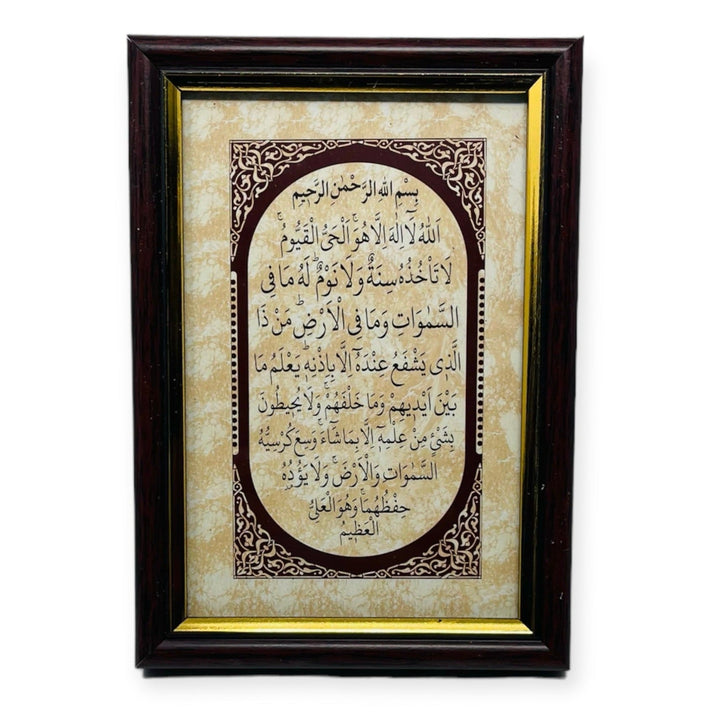 بِسْمِ اللهِ الرَّحْمٰنِ الرَّحِيْمِ
اَللهُ لَآ اِلٰهَ اِلَّا هُوَۚ اَلْحَىُّ الْقَيُّوْمُ ۚ
لَا تَاْخُذُهٗ سِنَةٌ وَّلَا نَوْمٌ ؕ لَهٗ مَا فِى
السَّمٰوَاتِ وَمَا فِى الْاَرْضِ ؕ مَنْ ذَا
الَّذِىْ يَشْفَعُ عِنْدَهٗٓ اِلَّا بِاِذْنِهٖ ؕ يَعْلَمُ مَا
بَيْنَ اَيْدِيْهِمْ وَمَا خَلْفَهُمْ ۚ وَلَا يُحِيْطُوْنَ
بِشَىْءٍ مِّنْ عِلْمِهٖٓ اِلَّا بِمَا شَآءَ ۚ وَسِعَ كُرْسِيُّهُ
السَّمٰوَاتِ وَالْاَرْضَ ۚ وَلَا يَؤُدُهٗ
حِفْظُهُمَا ۚ وَهُوَ الْعَلِىُّ
الْعَظِيْمُ